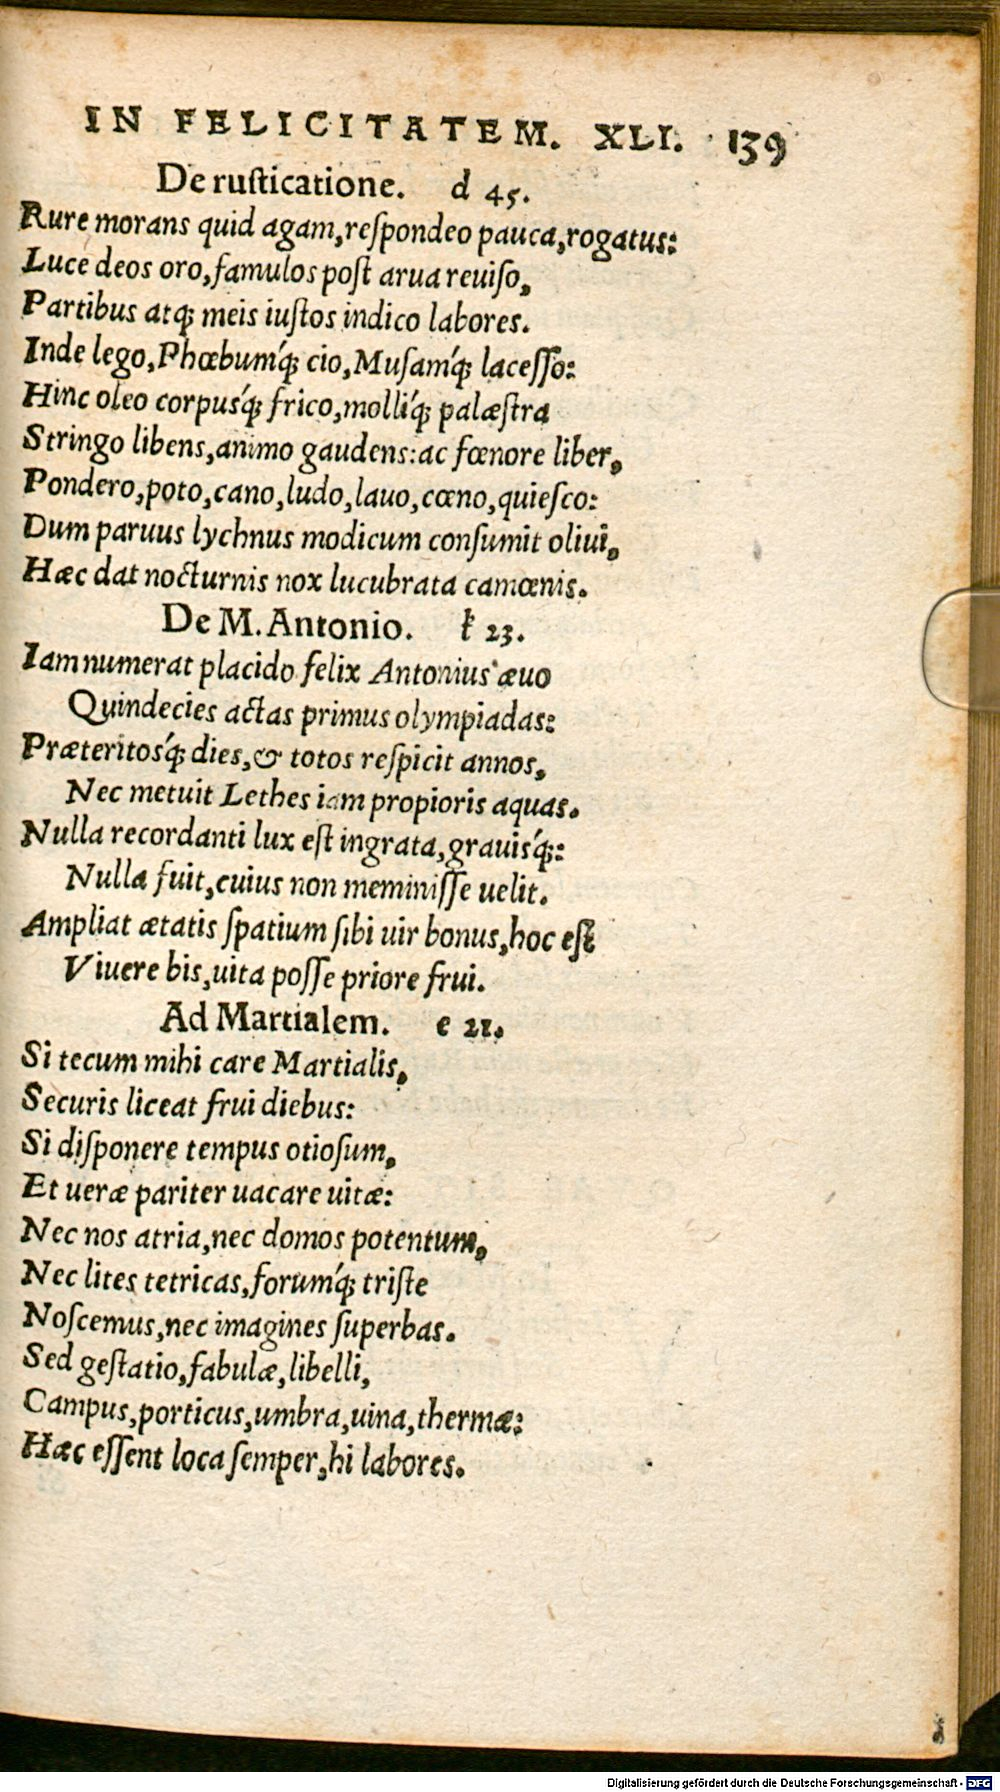 IN FELICITATEM. XLI. 139
De rusticatione. d 45.
Rure morans quid agam, reſpondeo pauca, rogatus:
Luce deos oro, famulos poſt arua reuiſo,
Partibus atq; meis iuſtos indico labores.
Inde lego, Phœbumq́; cio, Muſamq́; laceſſo:
Hinc oleo corpusq́; frico, molliq́; palæſtra
Stringo libens, animo gaudens: ac fœnore liber,
Pondero, poto, cano, ludo, lauo, cœno, quieſco:
Dum paruus lychnus modicum conſumit oliui,
Hæc dat nocturnis nox lucubrata camœnis.
De M. Antonio. k 23.
Iam numerat placido felix Antonius æuo
Quindecies actas primus olympiadas:
Præteritosq́; dies, & totos reſpicit annos,
Nec metuit Lethes iam propioris aquas.
Nulla recordanti lux eſt ingrata, grauisq́;:
Nulla fuit, cuius non meminiſſe uelit.
Ampliat ætatis ſpatium ſibi uir bonus, hoc eſt
Viuere bis, uita poſſe priore frui.
Ad Martialem. e 21.
Si tecum mihi care Martialis,
Securis liceat frui diebus:
Si diſponere tempus otioſum,
Et ueræ pariter uacare uitæ:
Nec nos atria, nec domos potentum,
Nec lites tetricas, forumq́; triſte
Noſcemus, nec imagines ſuperbas.
Sed geſtatio, fabulæ, libelli,
Campus, porticus, umbra, uina, thermæ:
Hæc eſſent loca ſemper, hi labores.
Digitalisierung gefördert durch die Deutsche Forschungsgemeinschaft - DFG